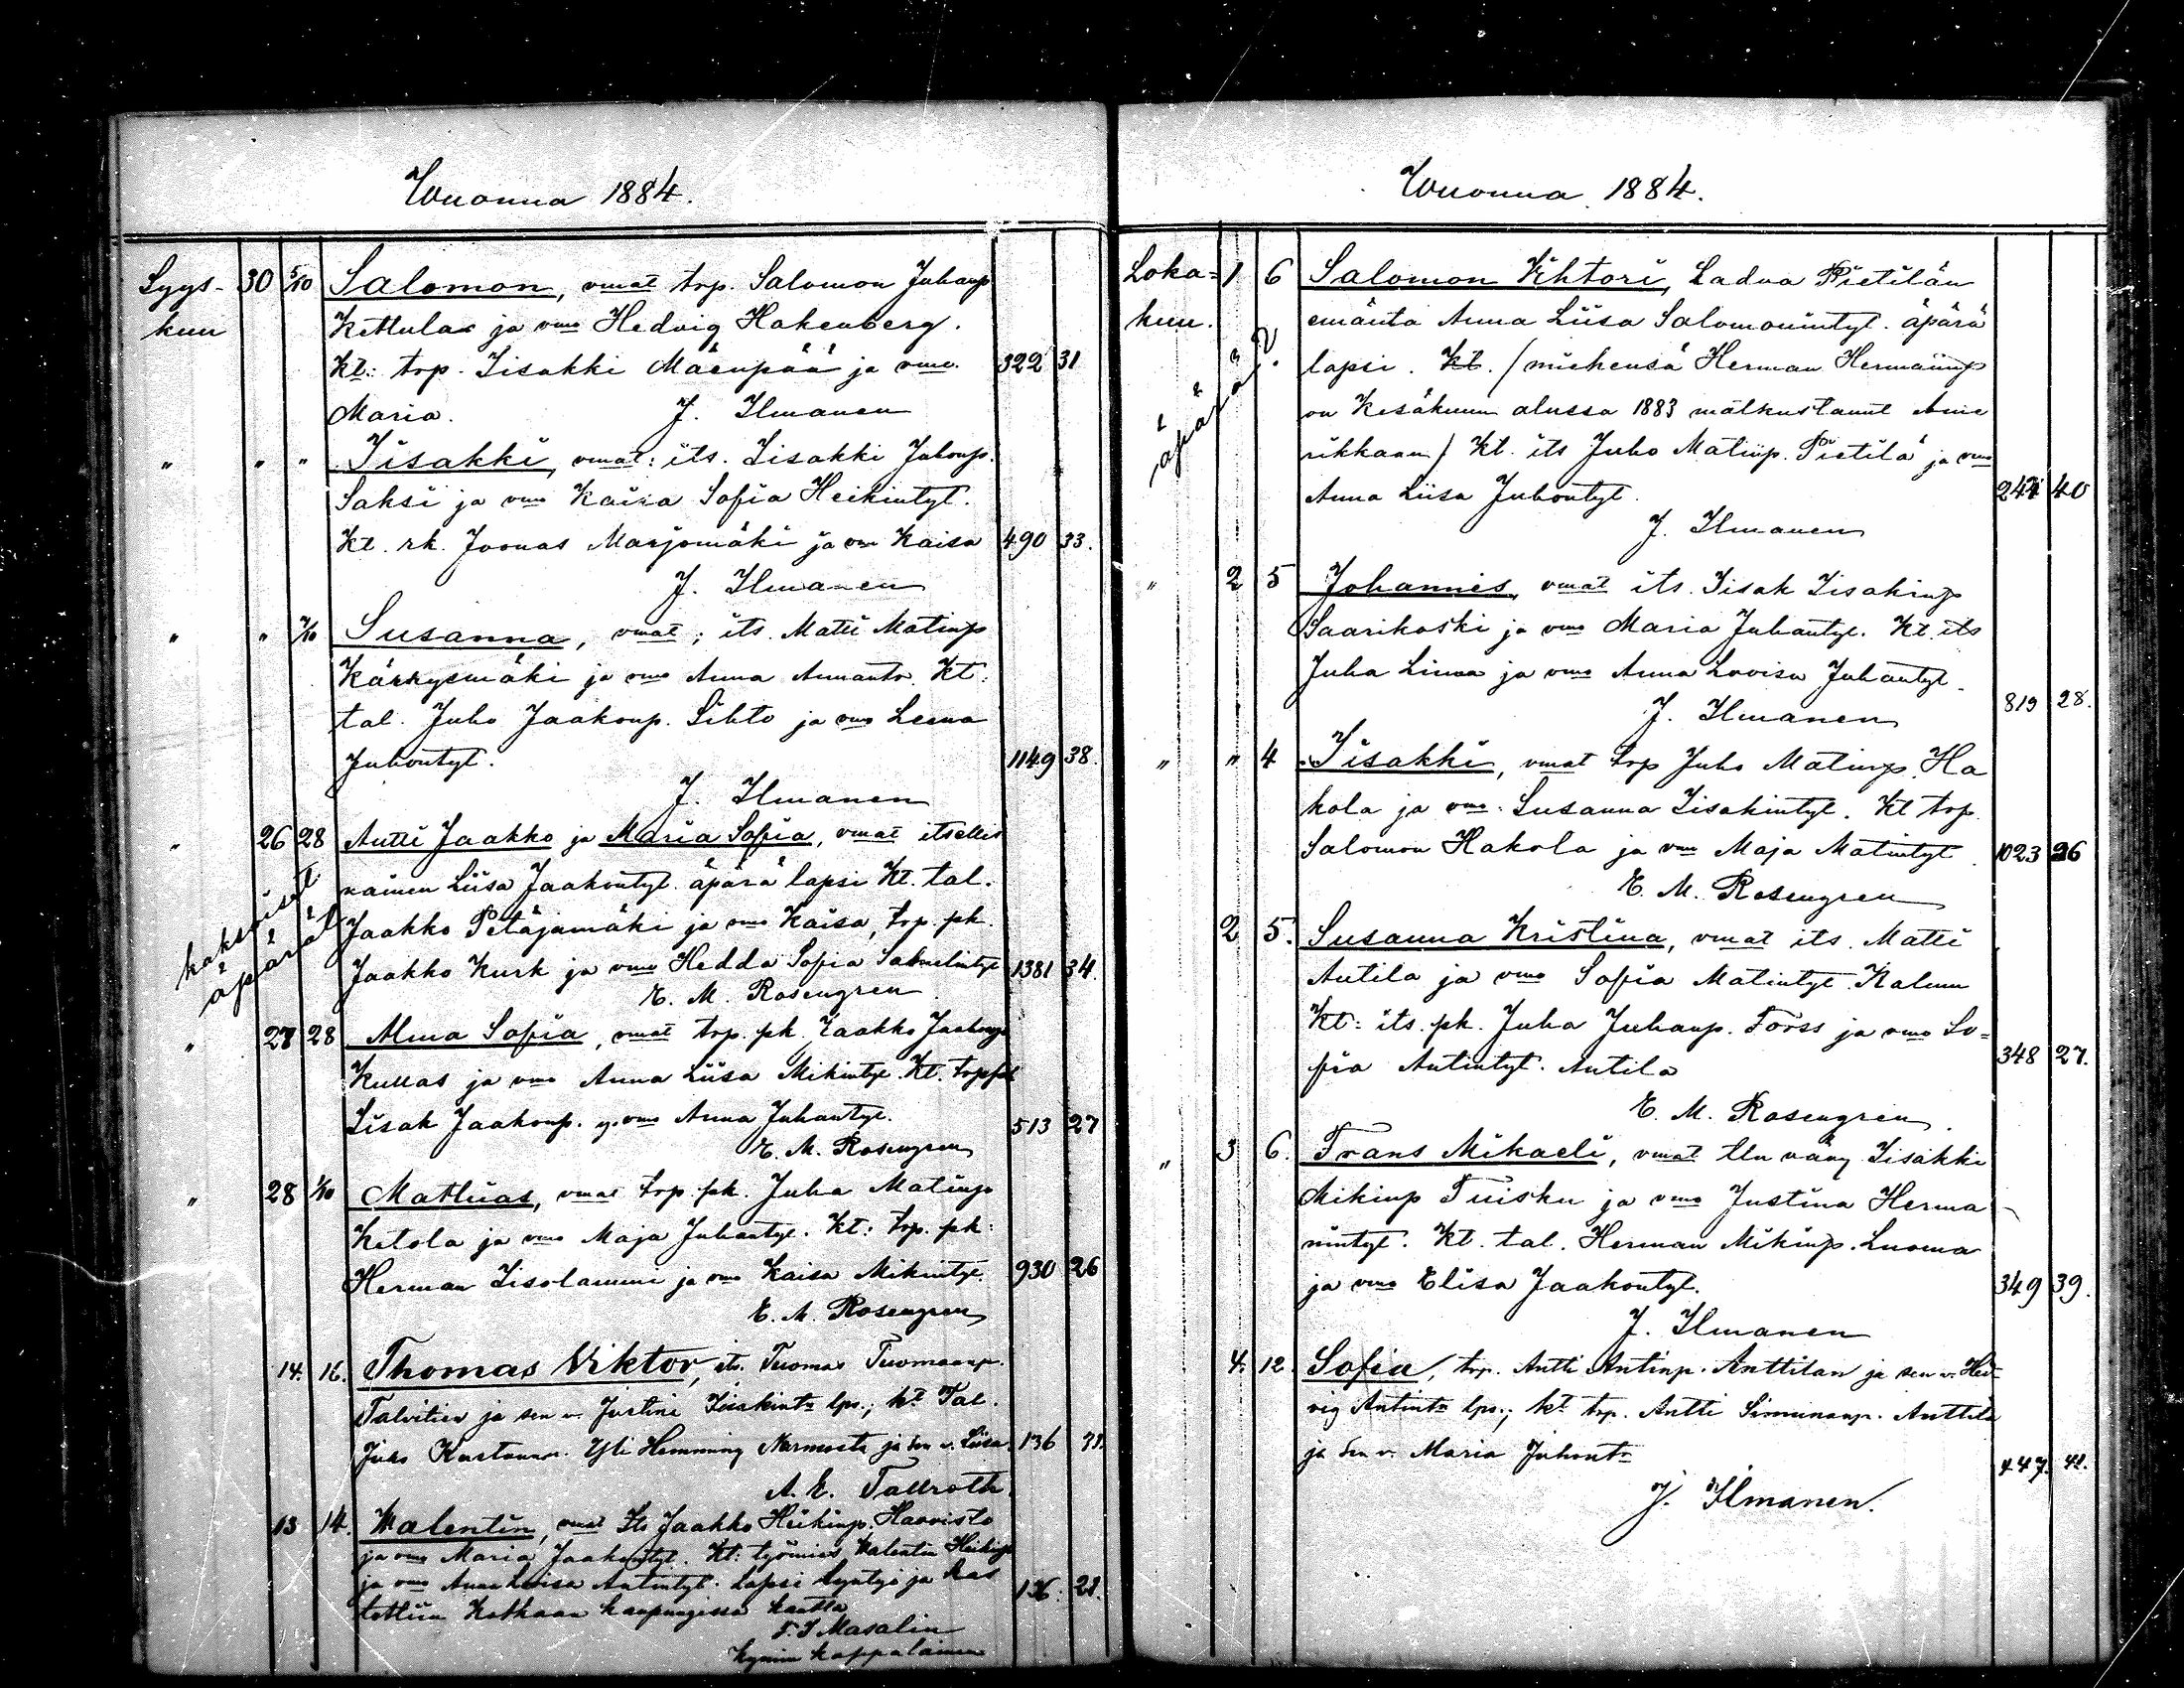 Wuonna 1884.
Syys- 30 5/10 Salomon, vmat trp. Salomon Juhanp
kuu Kettula ja vmo Hedvig Hakenberg.
Kt: trp. Iisakki Mäenpää ja vmo. 322 31
Maria. J. Ilmanen
" " " Iisakki, vmat: its. Iisakki Juhonp.
Saksi ja vmo Kaisa Sofia Heikintyt.
Kt. rk. Joonas Marjomäki ja vm Kaisa 490 33.
J. Ilmanen
" " 7/10 Susanna, vmat; its. Matti Matinp
Kärkyemäki ja vmo Anna Kt:
tal. Juho Jaakonp. Sihto ja vmo Leena
Juhontyt. 1149 38.
J. Ilmanen
" 26 28 Antti Jaakko ja Maria Sofia, vmat itsellis
kaksoiset nainen Liisa Jaakontyt. äpärä lapsi Kt. tal.
äpärät Jaakko Petäjämäki ja vmo Kaisa, trp. pk.
Jaakko Kurk ja vmo Hedda Sofia 1381 34.
E. M. Rosengren
" 27 28 Alma Sofia, vmat trp. pk. Jaakko Jaakonp
Kullas ja vmo Anna Liisa Mikintyt. Kt. trp pk
Iisak Jaakonp. ja vmo Anna Juhantyt. 513 27
E. M. Rosengren
" 28 1/10 Mathias, vmat trp. pk. Juha Matinp
Ketola ja vmo Maja Juhantyt. Kt: trp. pk:
Herman Iisolammi ja vmo Kaisa Mikintyt. 930 26
E. M. Rosengren
14. 16. Thomas Viktor, its. Tuomas Tuomaanp.
Talvitien ja sen v. Justini Iisakintr lps.; kt Tal.
Juho Kustaanp. Yli Hemming Nurmosta ja sen v. Liisa. 136
A. E. Tallroth.
13 14. Walentin, vmat Its Jaakko Heikinp. Haavisto
ja vmo Maria Jaakontyt. Kt: työmies Kalentin Heikinp
ja vmo Anna Loisa Antintyt. Lapsi syntyi ja kas
tettiin Kotkaan kaupungissa kautta 136. 28.
F. I Masalin
Kymin kappalainen
Wuonna 1884.
Loka= 1 6 Salomon Vihtori, Ladva Pietilän
kuu. emäntä Anna Liisa Salomonintyt. äpärä
lapsi. Kt. /miehensä Herman Hermaninp
on Kesäkuun alussa 1883 matkustanut Ame
rikkaan/ Kt. its Juho Matinp. Pietilä ja vmo
Anna Liisa Juhontyt. 244 40
J. Ilmanen
" 2 5 Johannes, vmat its. Iisak Iisakinp
Saarikoski ja vmo Maria Juhantyt. Kt. its
Juha Linna ja vmo Anna Lovisa Juhantyt. 819 28.
J. Ilmanen
" " 4 Iisakki, vmat trp Juho Matinp. Ha
kola ja vmo. Susanna Iisakintyt. Kt trp.
Salomon Hakola ja vmo Maja Matintyt. 1023 26
E. M. Rosengren
2 5. Susanna Kristina, vmat its. Matti
Antila ja vmo Sofia Matintyt. Kalmu
Kt: its. pk. Juha Juhanp. Förss ja vmo So=
fia Antintyt. Antila 348 27.
E. M. Rosengren.
" 3 6. Frans Mikaeli, vmat tln vävy Iisakki
Mikinp Tuisku ja vmo Justina Herma
nintyt. Kt. tal. Herman Mikinp. Luoma
ja vmo Elisa Jaakontyt. 349 39.
J. Ilmanen
4. 12. Sofia, trp. Antti Antinp. Anttilan ja sen v. Hed-
vig Antintr lps.; kt trp. Antti Simunanp. Anttila
ja sen v. Maria Juhontr 447. 41.
J. Ilmanen.